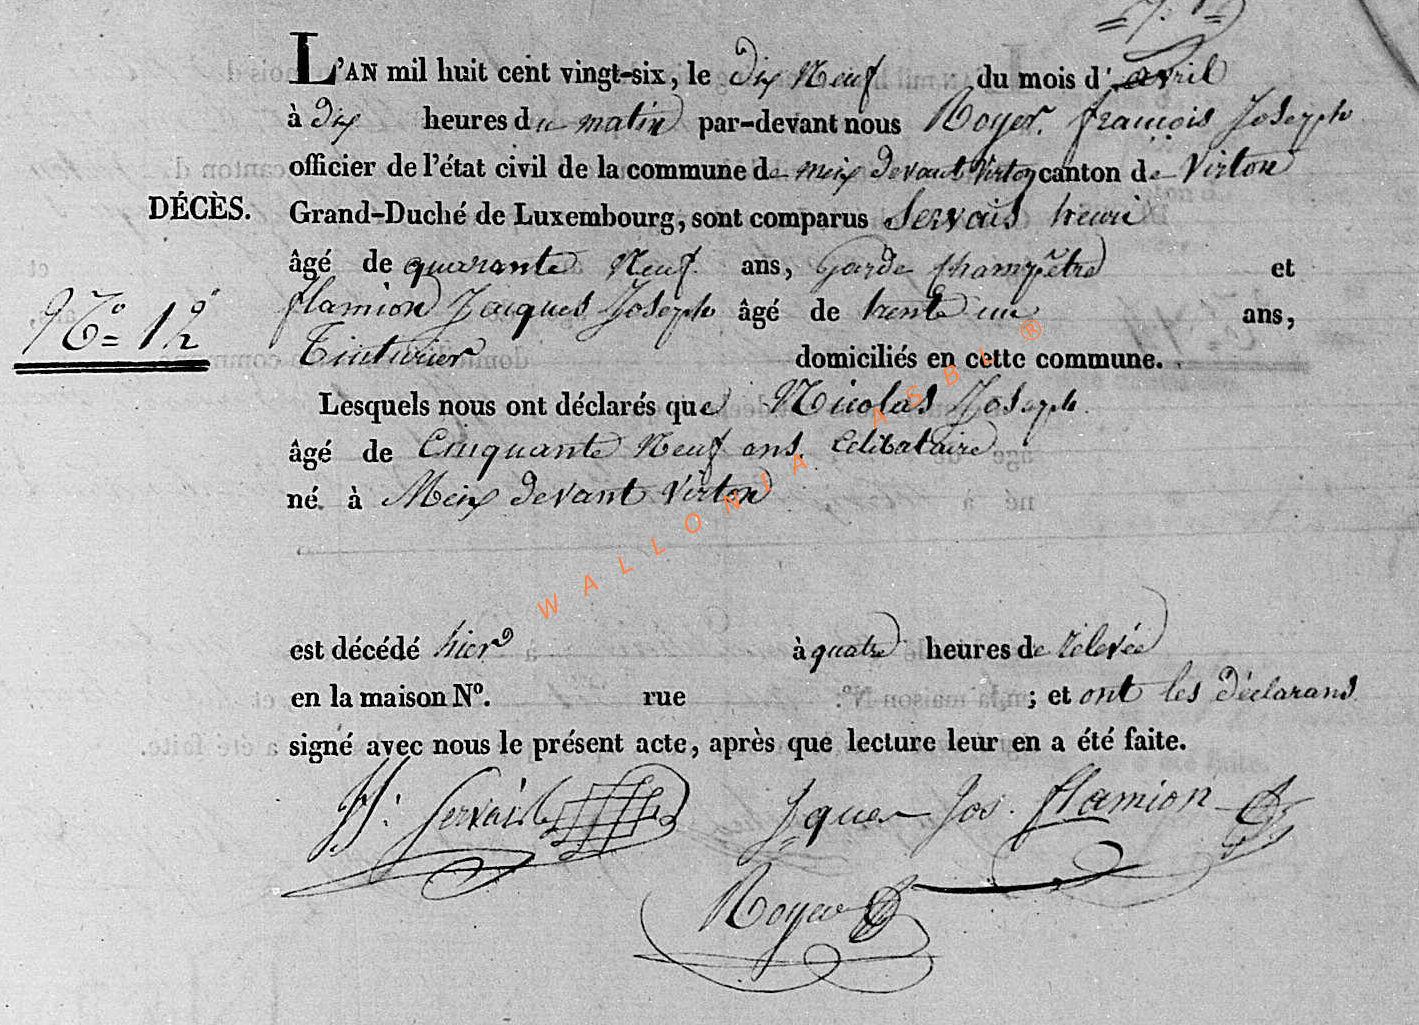 L'AN mil huit cent vingt-six, le dix Neuf du mois d'avril
à dix heures du matin par-devant nous Royer. françois Joseph
officier de l'état civil de la commune de meix devant Virton canton de Virton
DÉCÈS. Grand-Duché de Luxembourg, sont comparus Servais henri
âgé de quarante Neuf ans, Garde champêtre et
flamion Jacques Joseph âgé de trente un ans,
N° 12
Tinturier domiciliés en cette commune.
Lesquels nous ont déclarés que Nicolas Joseph
âgé de Cinquante Neuf ans. Celibataire
né à Meix devant Virton
WALLONIA ASBL ®
est décédé hier à quatre heures de rélevée
en la maison N°. rue ; et ont les déclarans
signé avec nous le présent acte, après que lecture leur en a été faite.
H: Servais Jques Jos. flamion
Royer